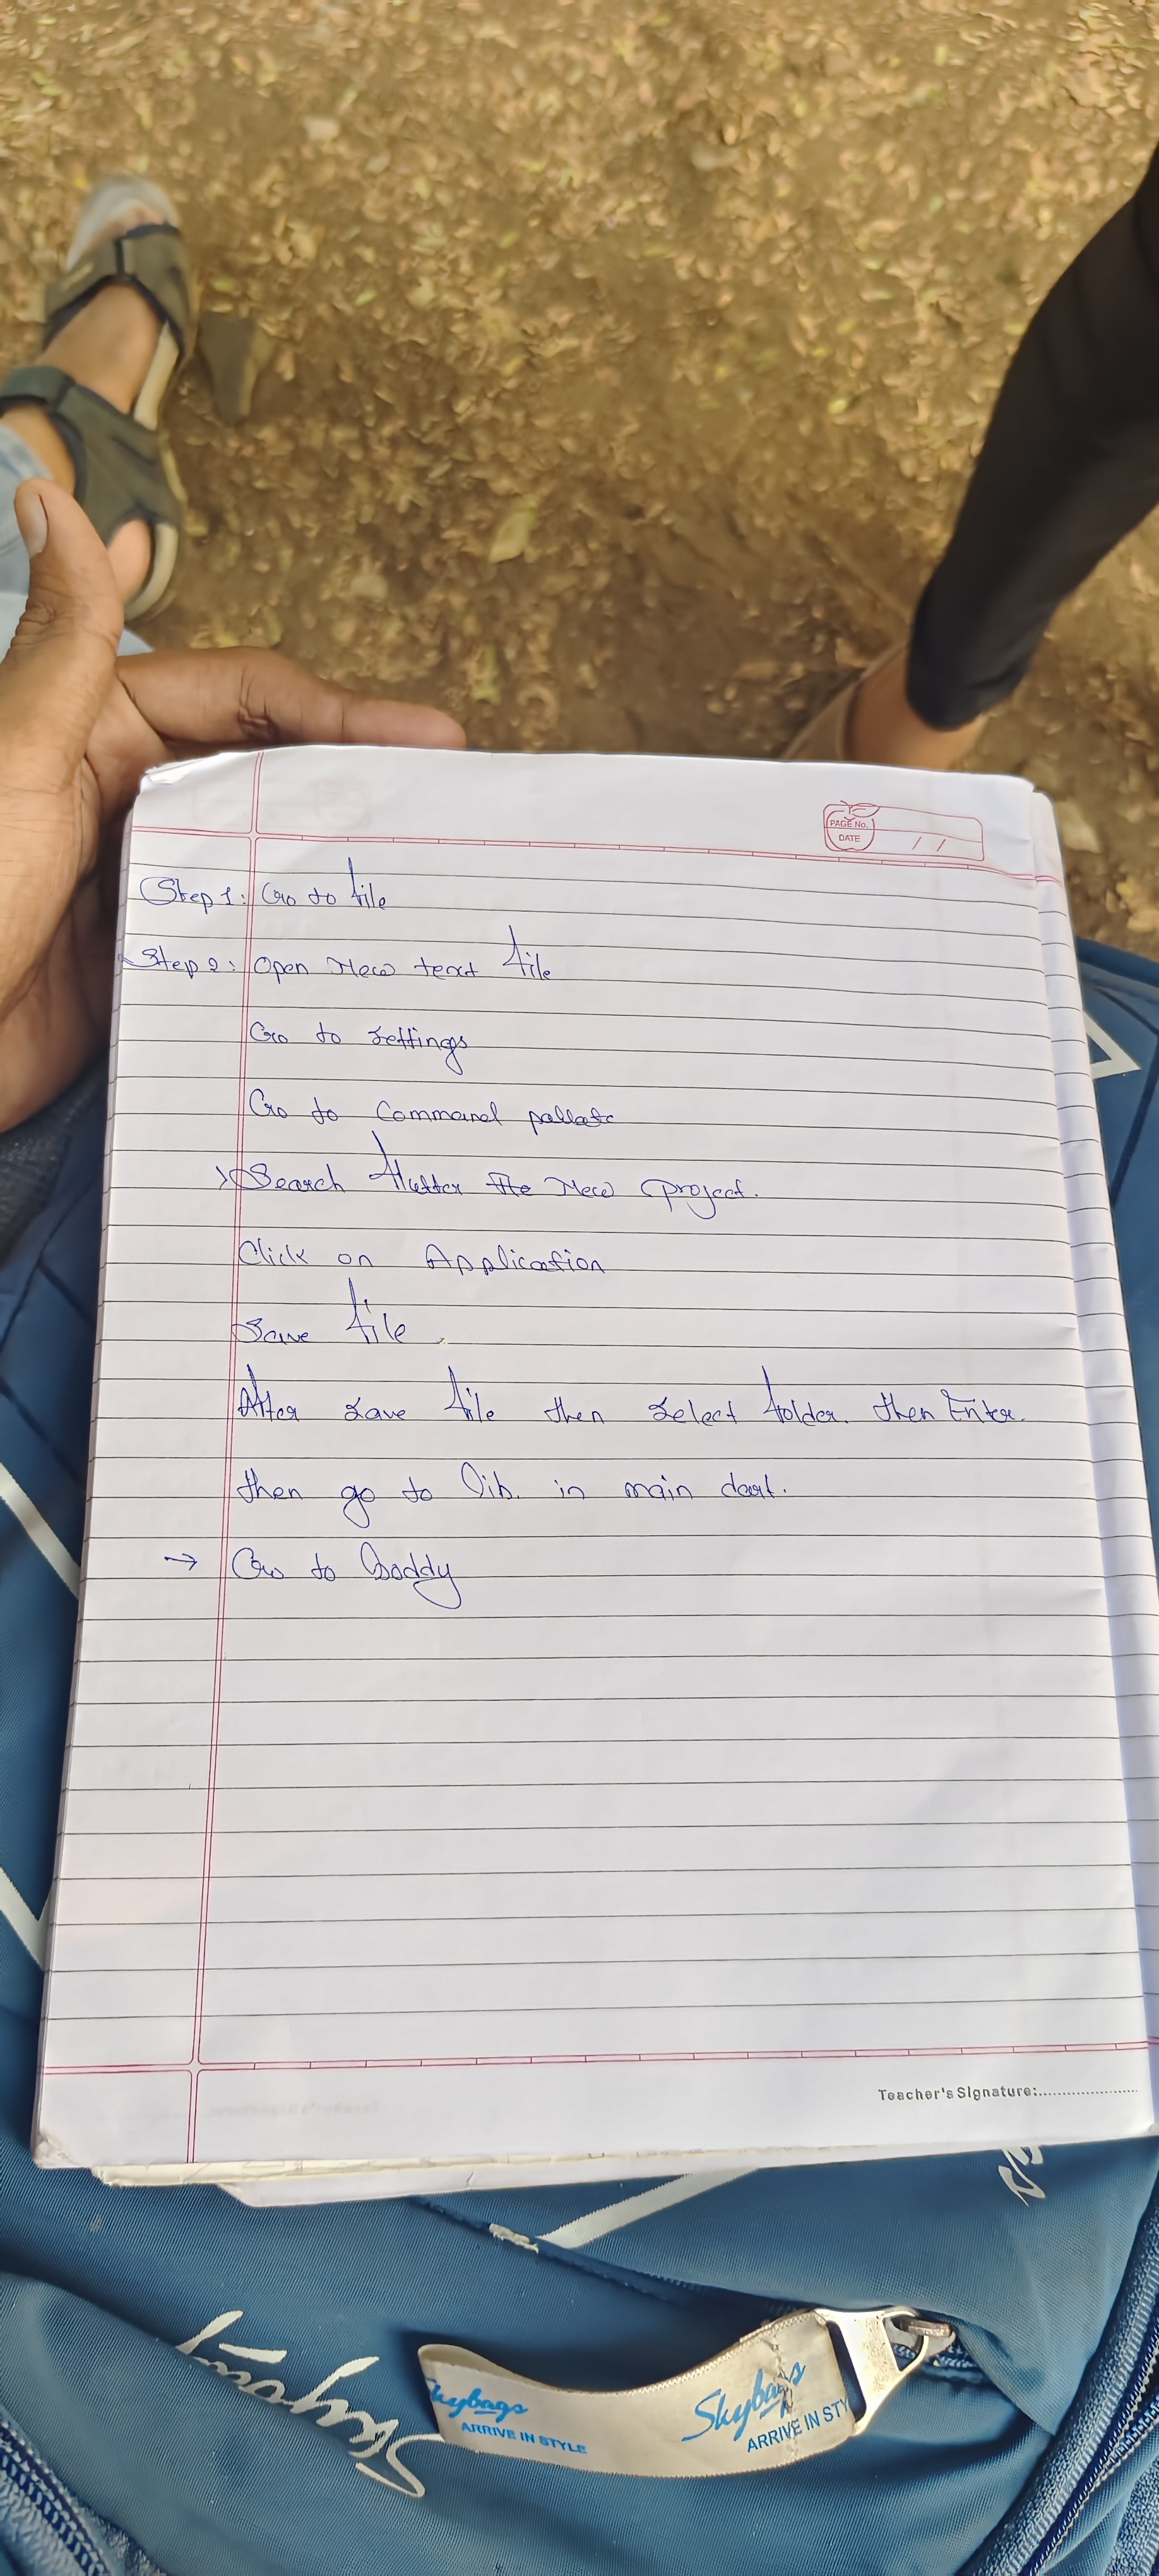 PAGE No.
DATE / /
Step 1: Go to file
Step 2: Open New text file
Go to settings
Go to Command pallate
> Search flutter the New project.
Click on Application
Save file.
After save file then select folder. then Enter.
then go to lib. in main dart.
→ Go to boddy
Teacher's Signature:......................
Skybags
Skybags
ARRIVE IN STYLE
Skybags
ARRIVE IN STY